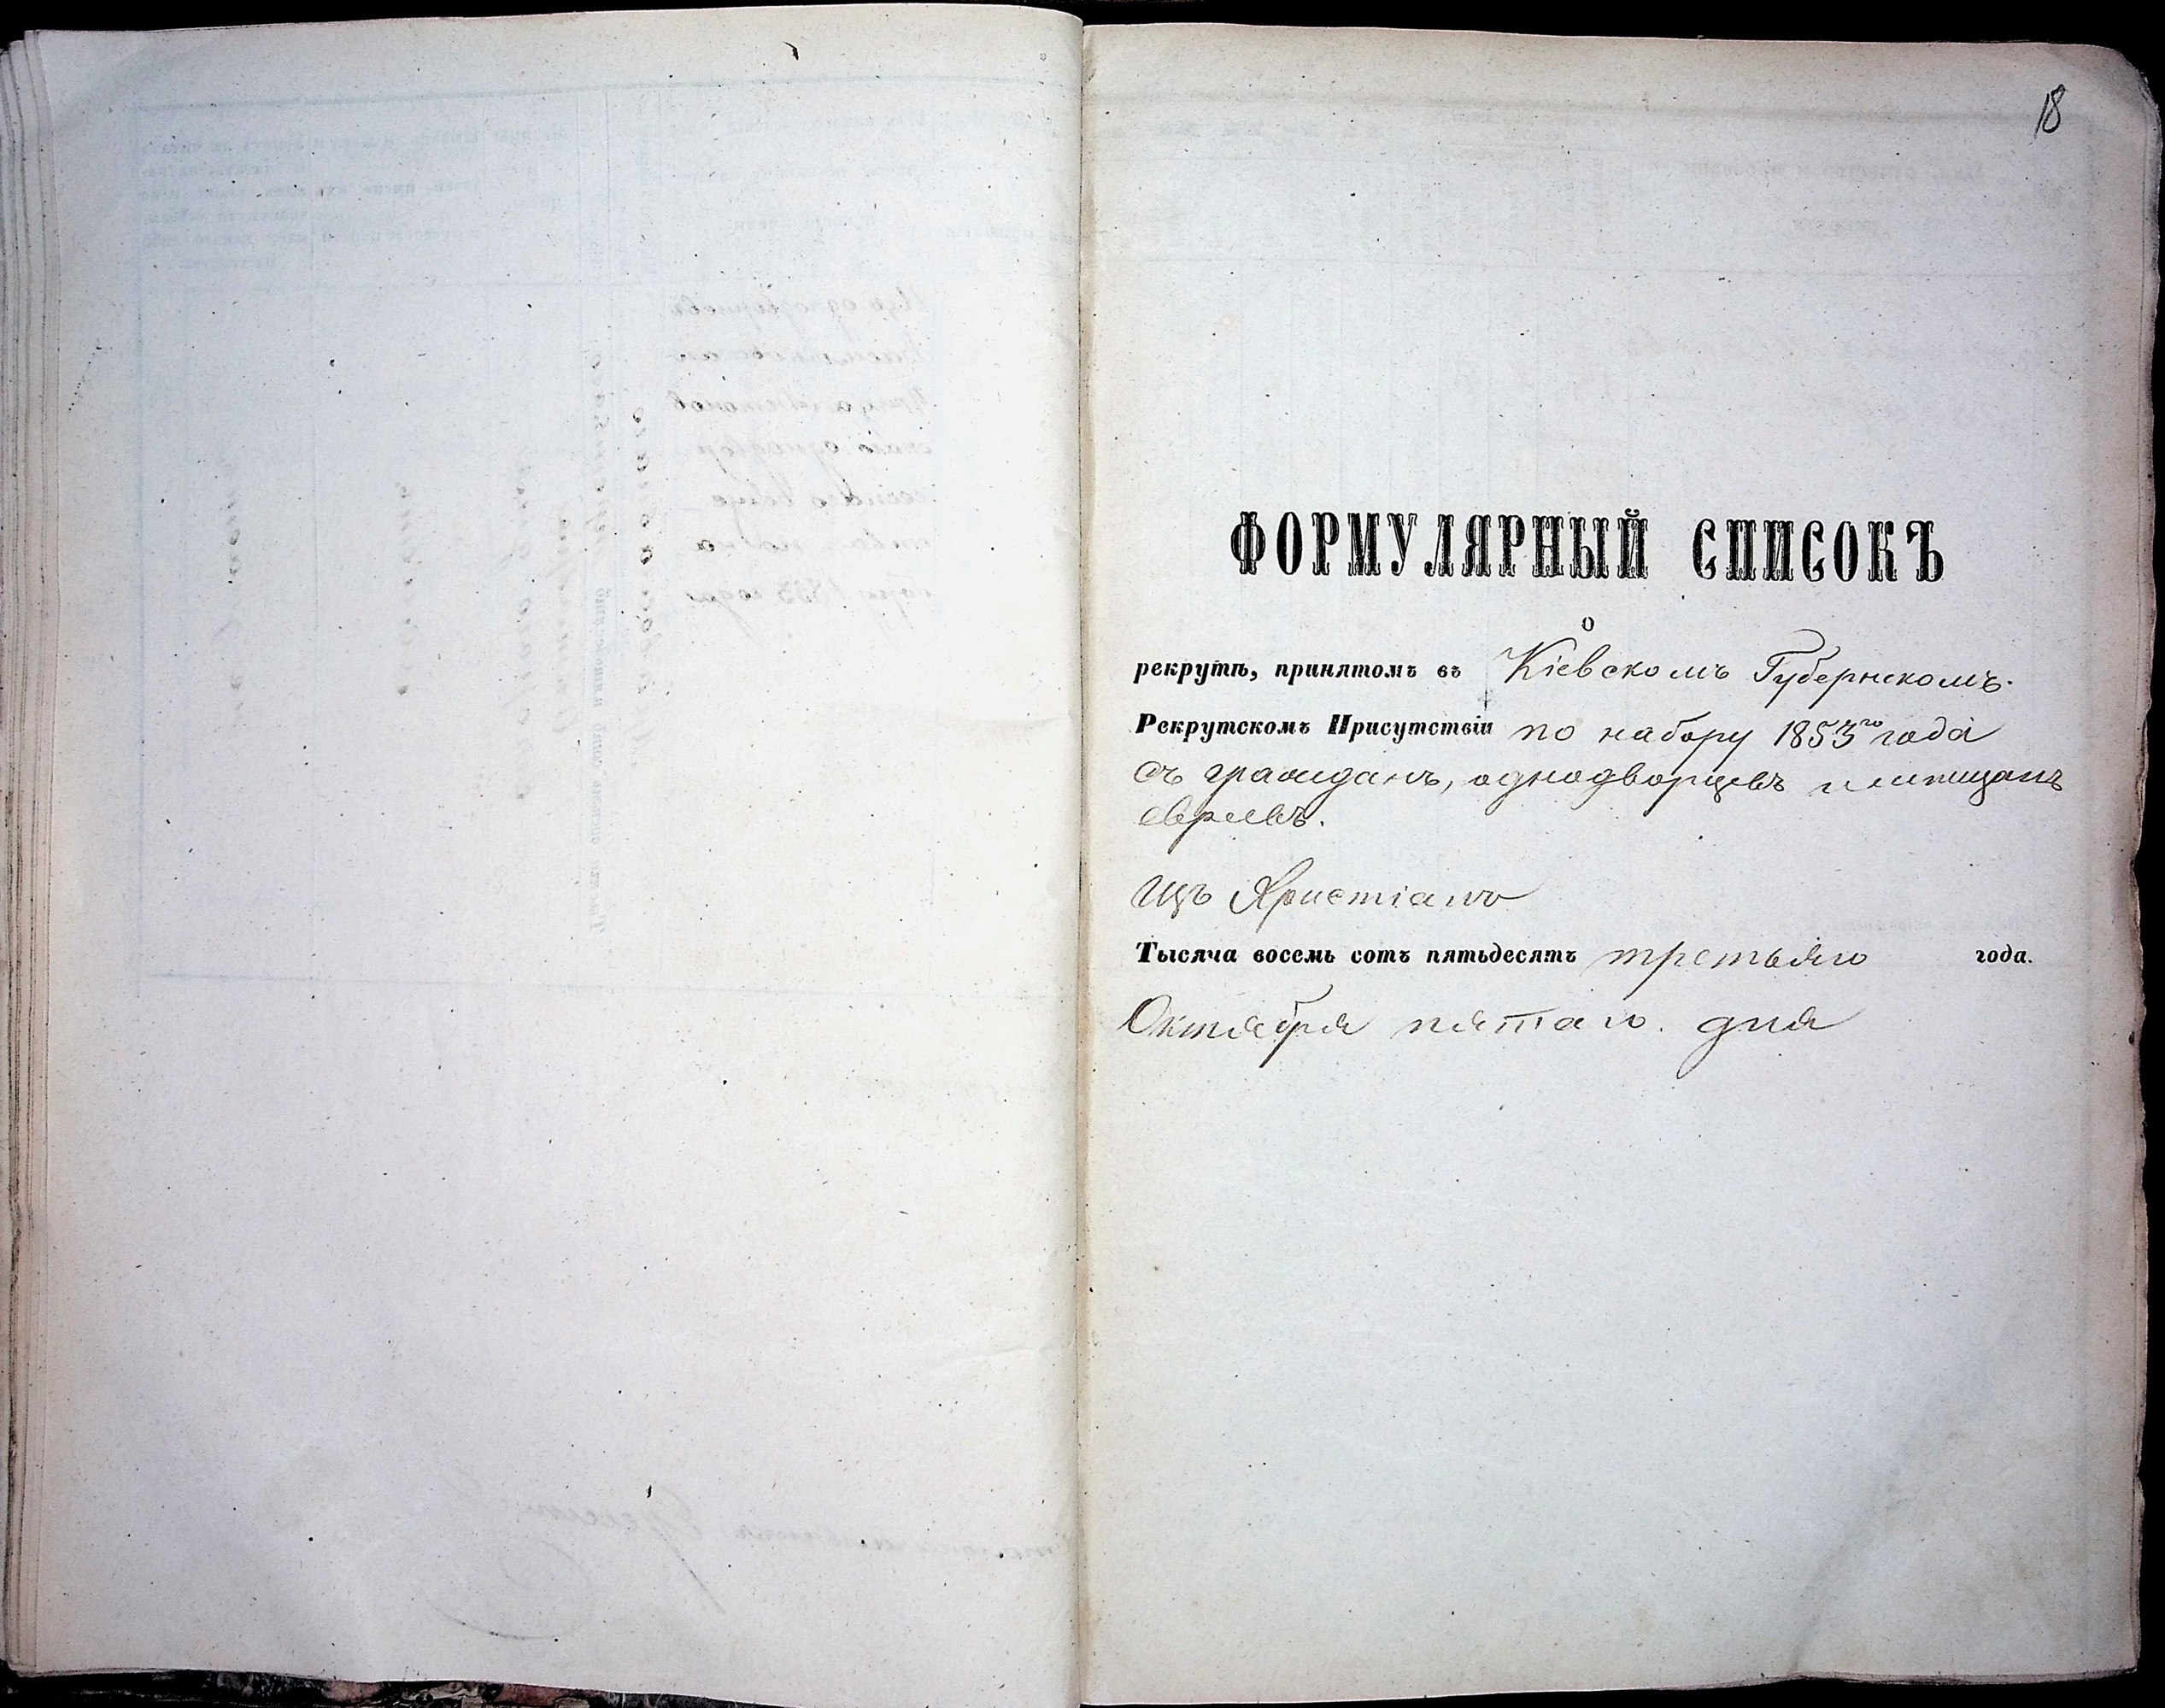 18
ФОРМУЛЯРНЫЙ СПИСОКЪ
о
рекрутѣ, принятомъ въ Кіевскомъ Губернскомъ
Рекрутскомъ Присутствіи по набору 1853го года
съ гражданъ, однодворцевъ и мѣщанъ
евреевъ.
Изъ Христіанъ
Тысяча восемь сотъ пятьдесятъ третьяго года.
Октября пятаго дня